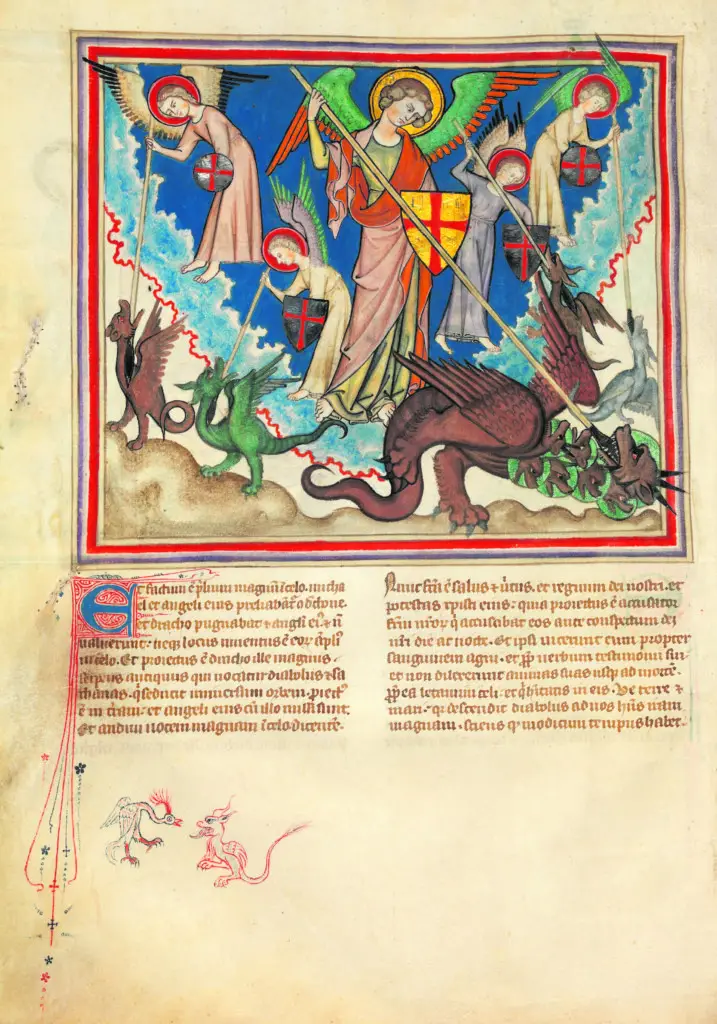 Et factum ē p̄lium magnū ī celo. micha
el et angeli eius preliabāt᷑ c̄ dͨone.
et dracho pugnabat· et angĺi eiꝰ ⁊ n̄
ualuerunt: neqꝫ locus inuentus ē eoꝝ āpliꝰ
in celo. Et proiectus ē dracho ille magnus.
serpens antiquus qui uocatur diabolus ⁊ sa
thanas. q̇ seducit uniuersum orbem. ꝓiectꝰ
ē in t̄ram: et angeli eius cū illo missi sunt.
Et audiui uocem magnam ī celo dicentē.
Nunc fc̄a ē salus ⁊ uirtus. et regnum dei nostri. et
potestas xp̄isti eius: quia proiectus ē accusator
fr̄m nr̄oꝝ q̇ accusabat eos ante conspectum dei
nr̄i die ac nocte. Et ipsi uicerunt eum propter
sanguinem agni. et ꝓp̄ uerbum testimonii sui·
et non dilexerunt animas suas usqꝫ ad mortē.
ꝓp̄ea letamini celi: et q̇ hītatis in eis. Ve terre ⁊
mari· qꝛ descendit diabolus ad uos hn̄s iram
magnam. sciens qͩ modicum tempus habet.